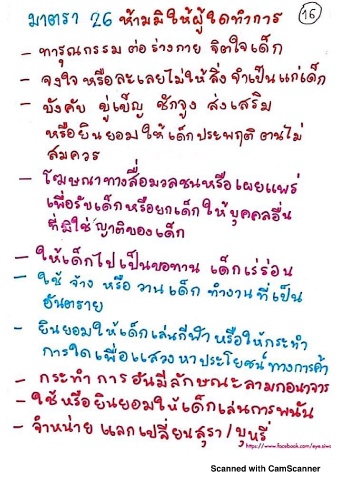 มาตรา 26 ห้ามมิให้ผู้ใดทำการ
16
- ทารุณกรรม ต่อ ร่างกาย จิตใจเด็ก
- จงใจ หรือละเลยไม่ให้สิ่งจำเป็นแก่เด็ก
- บังคับ ขู่เข็ญ ชักจูง ส่งเสริม
หรือยินยอมให้เด็กประพฤติตนไม่
สมควร
- โฆษณาทางสื่อมวลชนหรือเผยแพร่
เพื่อรับเด็กหรือยกเด็กให้บุคคลอื่น
ที่มิใช่ญาติของเด็ก
- ให้เด็กไปเป็นขอทาน เด็กเร่ร่อน
- ใช้ จ้าง หรือ วานเด็ก ทำงานที่เป็น
อันตราย
- ยินยอมให้เด็กเล่นกีฬา หรือให้กระทำ
การใดเพื่อแสวงหาประโยชน์ทางการค้า
- กระทำการอันมีลักษณะลามกอนาจาร
- ใช้หรือยินยอมให้เด็กเล่นการพนัน
- จำหน่าย แลกเปลี่ยนสุรา/บุหรี่
https://www.facebook.com/eye.siwa
Scanned with CamScanner